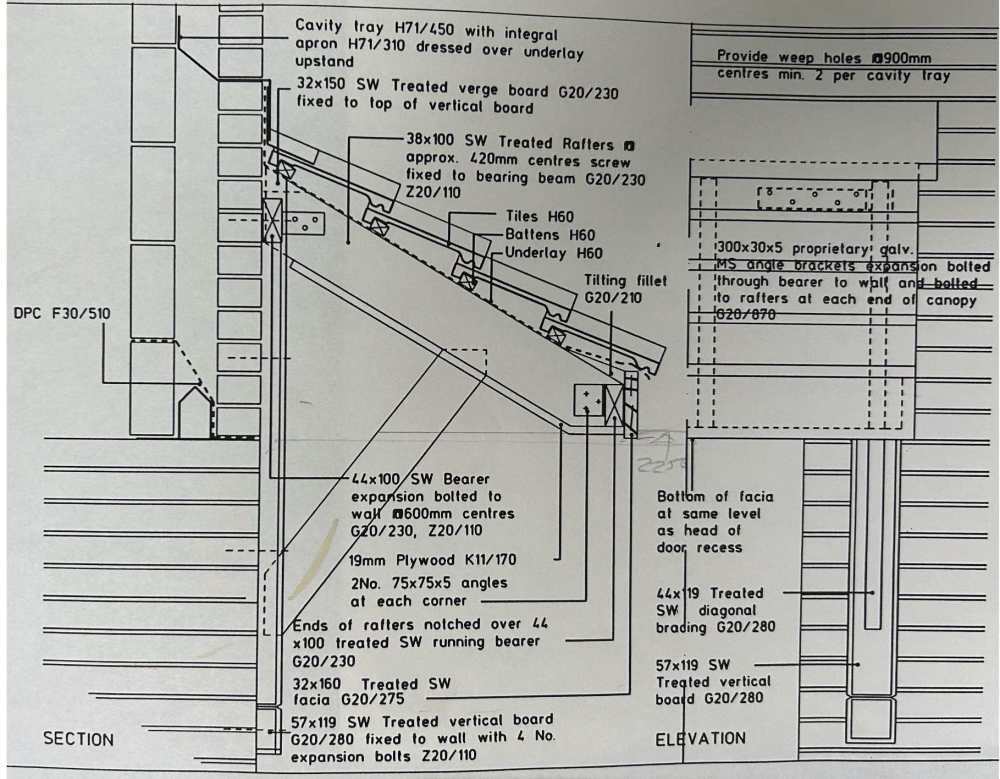 Cavity tray H71/450 with integral
apron H71/310 dressed over underlay
upstand
32x150 SW Treated verge board G20/230
fixed to top of vertical board
38x100 SW Treated Rafters @
approx. 420mm centres screw
fixed to bearing beam G20/230
Z20/110
Tiles H60
Battens H60
Underlay H60
Tilting fillet
G20/210
DPC F30/510
44x100 SW Bearer
expansion bolted to
wall @600mm centres
G20/230, Z20/110
19mm Plywood K11/170
2No. 75x75x5 angles
at each corner
Ends of rafters notched over 44
x100 treated SW running bearer
G20/230
32x160 Treated SW
facia G20/275
57x119 SW Treated vertical board
G20/280 fixed to wall with 4 No.
expansion bolts Z20/110
SECTION
Provide weep holes @900mm
centres min. 2 per cavity tray
300x30x5 proprietary galv.
MS angle brackets expansion bolted
through bearer to wall and bolted
to rafters at each end of canopy
G20/870
2250
Bottom of facia
at same level
as head of
door recess
44x119 Treated
SW diagonal
brading G20/280
57x119 SW
Treated vertical
board G20/280
ELEVATION